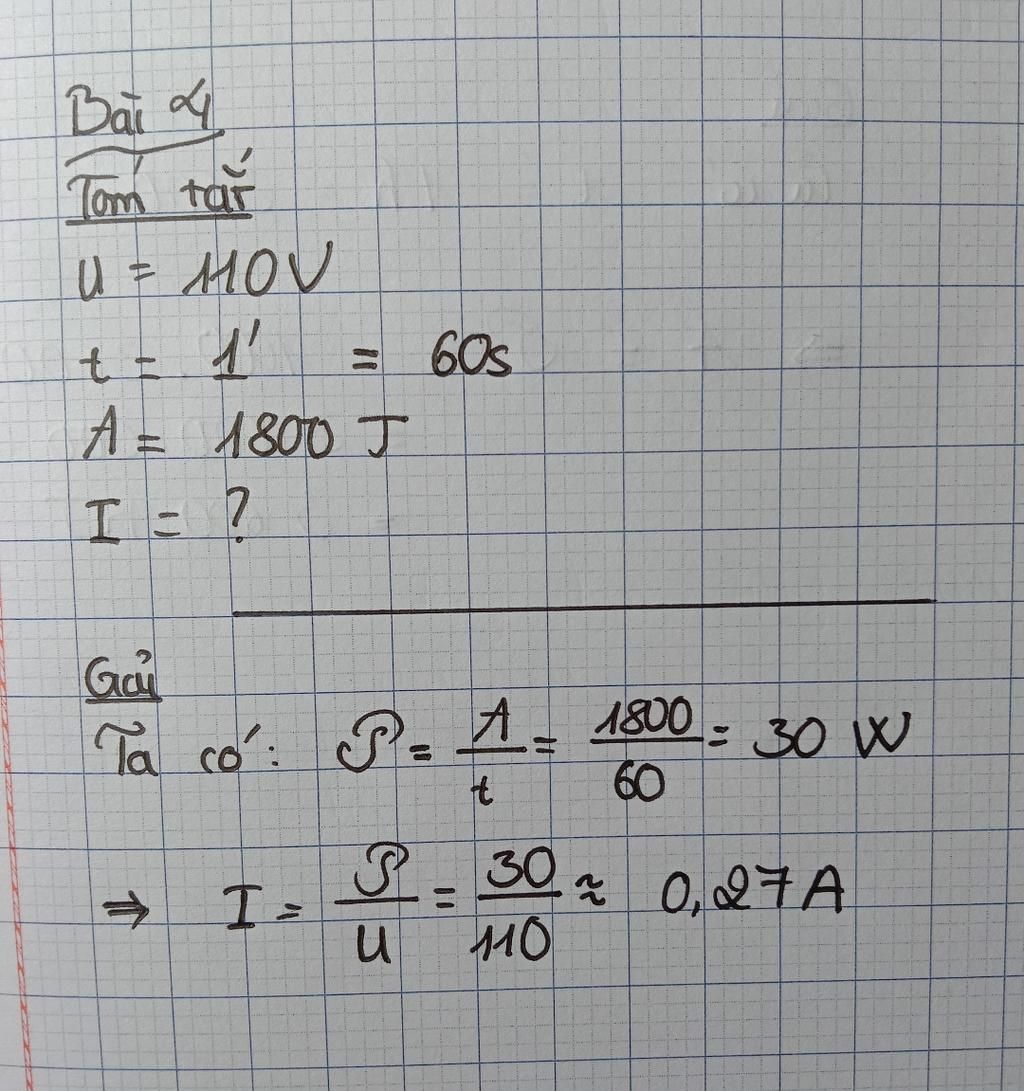 Bài 4
Tóm tắt
U = 110V
t = 1' = 60s
A = 1800 J
I = ?
Giải
Ta có: P = A/t = 1800/60 = 30 W
⇒ I = P/U = 30/110 ≈ 0,27A